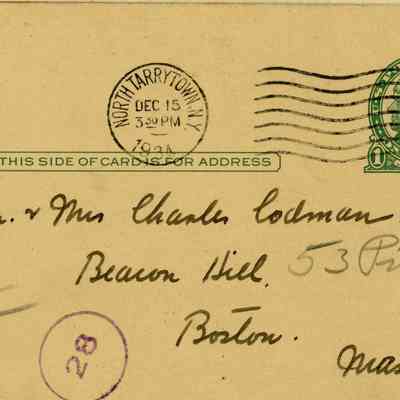 NORTH TARRYTOWN, N.Y.
DEC 15
3 30 PM
1934
THIS SIDE OF CARD IS FOR ADDRESS
1
& Mrs Charles Codman
Beacon Hill. 53
Boston.
28